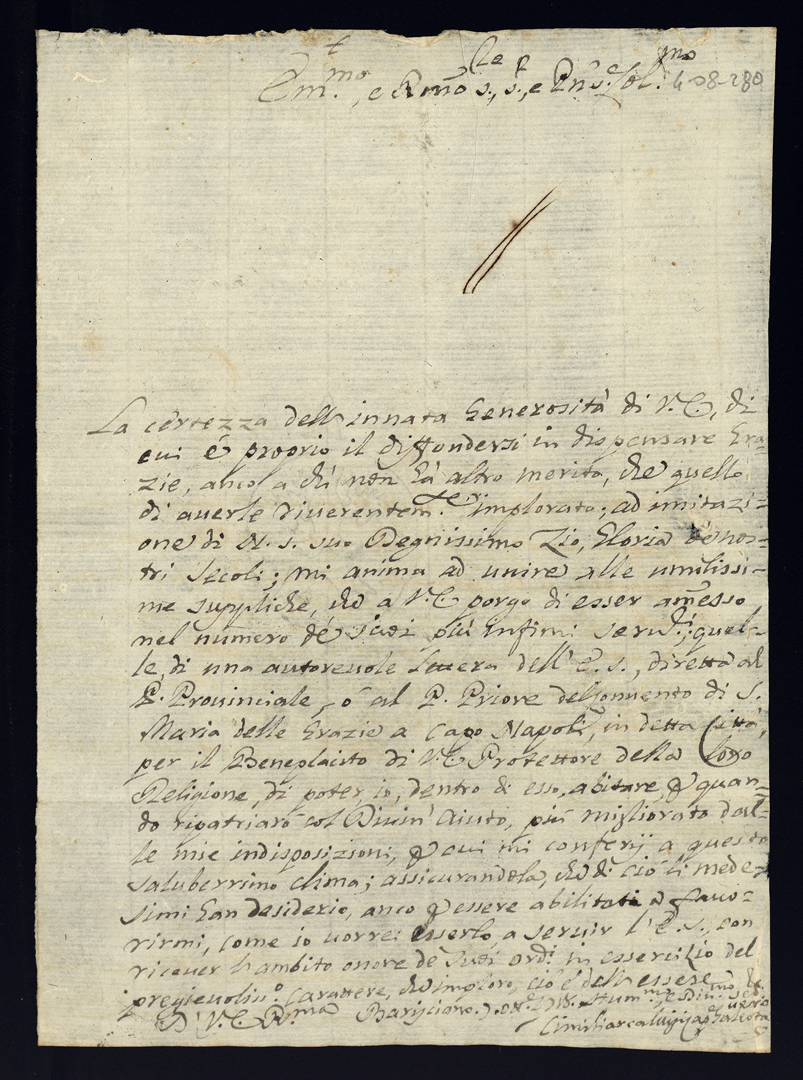 Em.mo, e Rmo S., S., e Pn S. Col.mo 4-08-280
La certezza dell innata Generosità di V. E., di
cui é proprio il diffondersi in dispensare Gra-
zie, anco a chi non hà altro merito, che quello
di auerle riuerentem.te implorato; ad imitazi-
one di N. S. suo Degnissimo Zio, Gloria de nos-
tri Secoli; mi anima ad unire alle umilissi-
me suppliche, che a V. E. porgo di esser amesso
nel numero de suoi più infimi serud.i; quel-
le, di una autoreuole lettera dell' E. S., diretta al
P. Prouinciale, ò al P. Priore del Conuento di S.
Maria delle Grazie a Capo Napoli, in detta Città,
per il Beneplacito di V. E. Protettore della loro
Religione, di poter, io, dentro di esso, abitare quan-
do ripatriarò col Diuin' aiuto, più migliorato dal-
le mie indisposizioni, cui mi conferij a questo
saluberrimo clima; assicurandola, che di ciò li mede-
simi han desiderio, anco essere abilitati a fauo-
rirmi, come io uorrei esserlo, a seruir l'E. S., con
riceuer l'ambito onore de suoi ord.i in essercizio del
pregieuoliss.o carattere, che imploro, cio è dell essere
D' V. E. R.ma